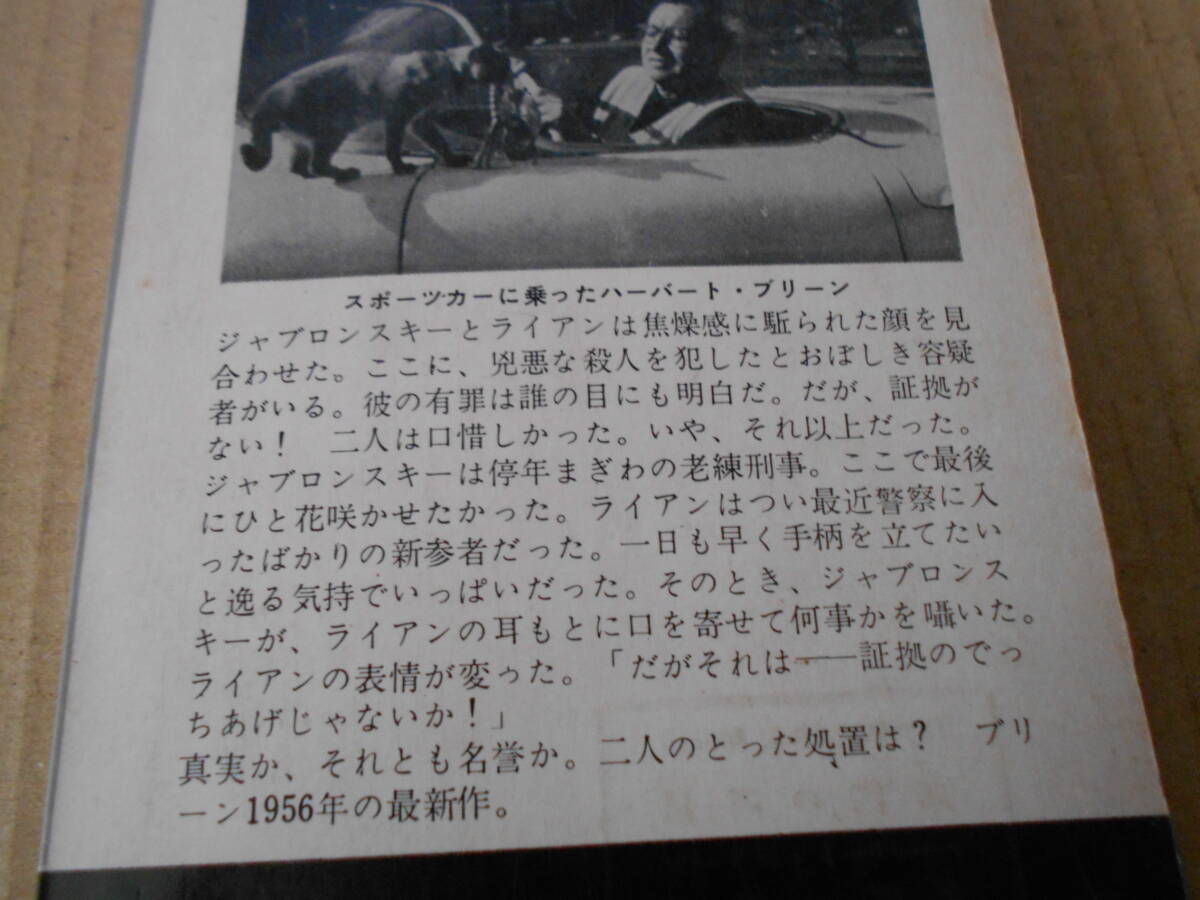 スポーツカーに乗ったハーバート・ブリーン
ジャブロンスキーとライアンは焦燥感に駈られた顔を見
合わせた。ここに、兇悪な殺人を犯したとおぼしき容疑
者がいる。彼の有罪は誰の目にも明白だ。だが、証拠が
ない！　二人は口惜しかった。いや、それ以上だった。
ジャブロンスキーは停年まぎわの老練刑事。ここで最後
にひと花咲かせたかった。ライアンはつい最近警察に入
ったばかりの新参者だった。一日も早く手柄を立てたい
と逸る気持でいっぱいだった。そのとき、ジャブロンス
キーが、ライアンの耳もとに口を寄せて何事かを囁いた。
ライアンの表情が変った。「だがそれは——証拠のでっ
ちあげじゃないか！」
真実か、それとも名誉か。二人のとった処置は？　ブリ
ーン1956年の最新作。